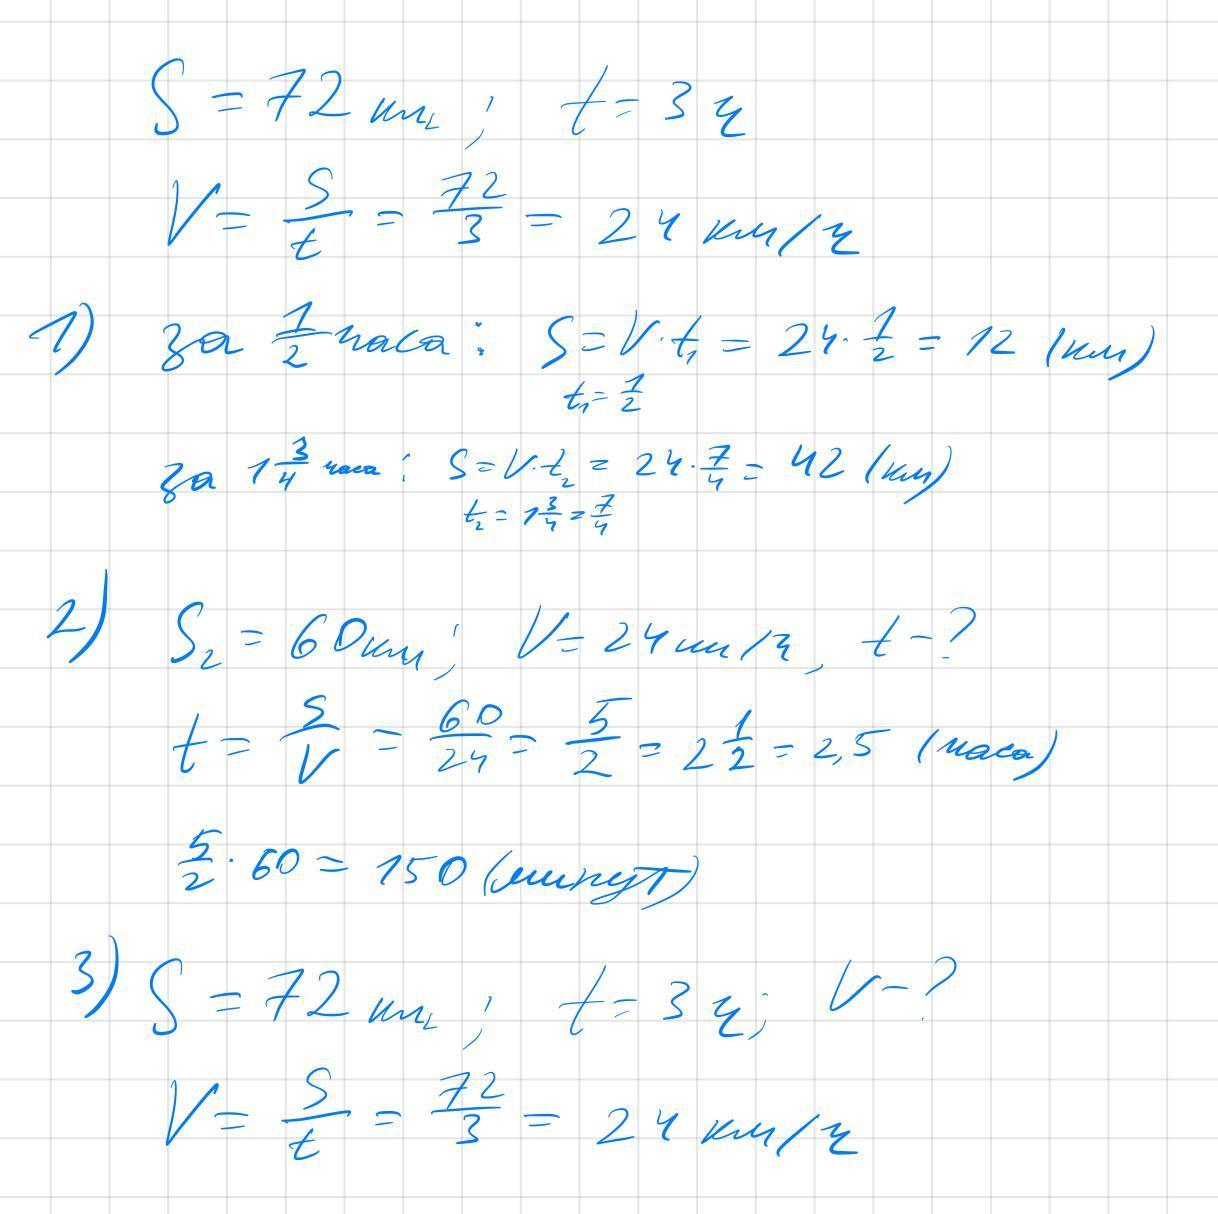 S = 72 км ; t = 3 ч
V = S/t = 72/3 = 24 км/ч
1) за 1/2 часа : S = V · t₁ = 24 · 1/2 = 12 (км)
t₁ = 1/2
за 1 3/4 часа : S = V · t₂ = 24 · 7/4 = 42 (км)
t₂ = 1 3/4 = 7/4
2) S₂ = 60 км ; V = 24 км/ч , t - ?
t = S/V = 60/24 = 5/2 = 2 1/2 = 2,5 (часа)
5/2 · 60 = 150 (минут)
3) S = 72 км ; t = 3 ч ; V - ?
V = S/t = 72/3 = 24 км/ч